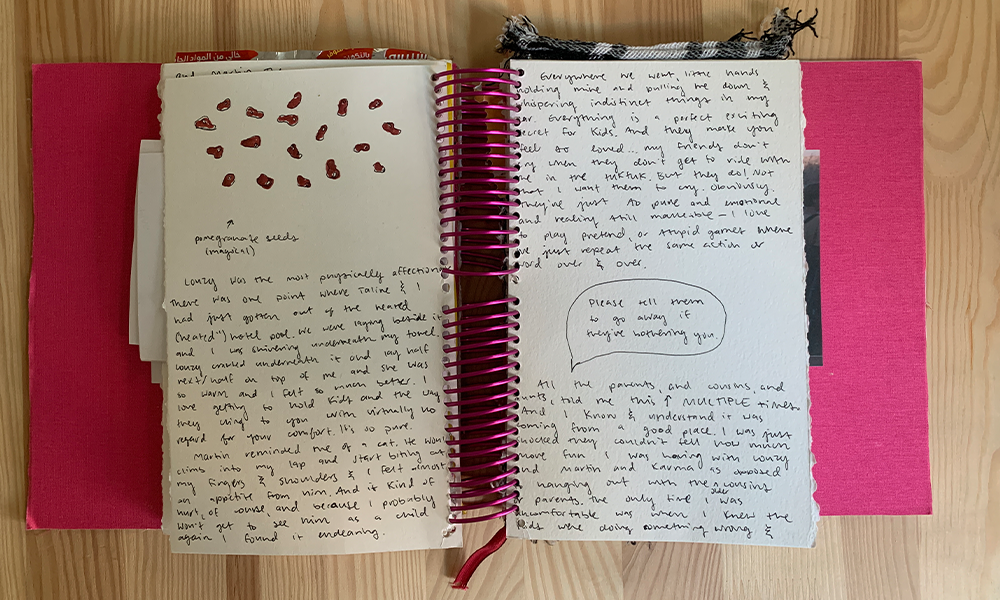 خالي من المواد الحا
بالنكهة
and Martin
↗
pomegranate seeds
(magical)
Louzy was the most physically affectionate
There was one point where Taline & I
had just gotten out of the heated
("heated") hotel pool. We were laying beside it
and I was shivering underneath my towel.
Louzy crawled underneath it and lay half
next/half on top of me and she was
so warm and I felt so much better. I
love getting to hold kids and the way
they cling to you with virtually no
regard for your comfort. It's so pure.
Martin reminded me of a cat. He would
climb into my lap and start biting at
my fingers & shoulders & I felt almost
an appetite from him. And it kind of
hurt, of course, and because I probably
won't get to see him as a child
again I found it endearing.
Everywhere we went, little hands
holding mine and pulling me down &
whispering indistinct things in my
ear. Everything is a perfect exciting
secret for kids. And they make you
feel so loved... my friends don't
cry when they don't get to ride with
me in the tuktuk. But they do! Not
that I want them to cry. Obviously.
They're just so pure and emotional
and reality still malleable — I love
to play pretend, or stupid games where
we just repeat the same action or
word over & over.
Please tell them
to go away if
they're bothering you.
All the parents, and cousins, and
aunts, told me this ↑ MULTIPLE times
And I know & understand it was
coming from a good place. I was just
shocked they couldn't tell how much
more fun I was having with Louzy
and Martin and Karma as opposed
to hanging out with the older cousins
or parents. The only time I was
uncomfortable was when I knew the
kids were doing something wrong &